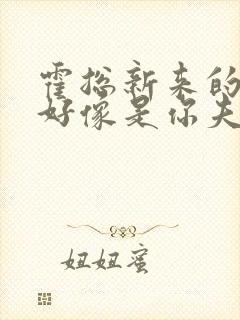 霍总新来的
好像是你夫
妞妞蜜